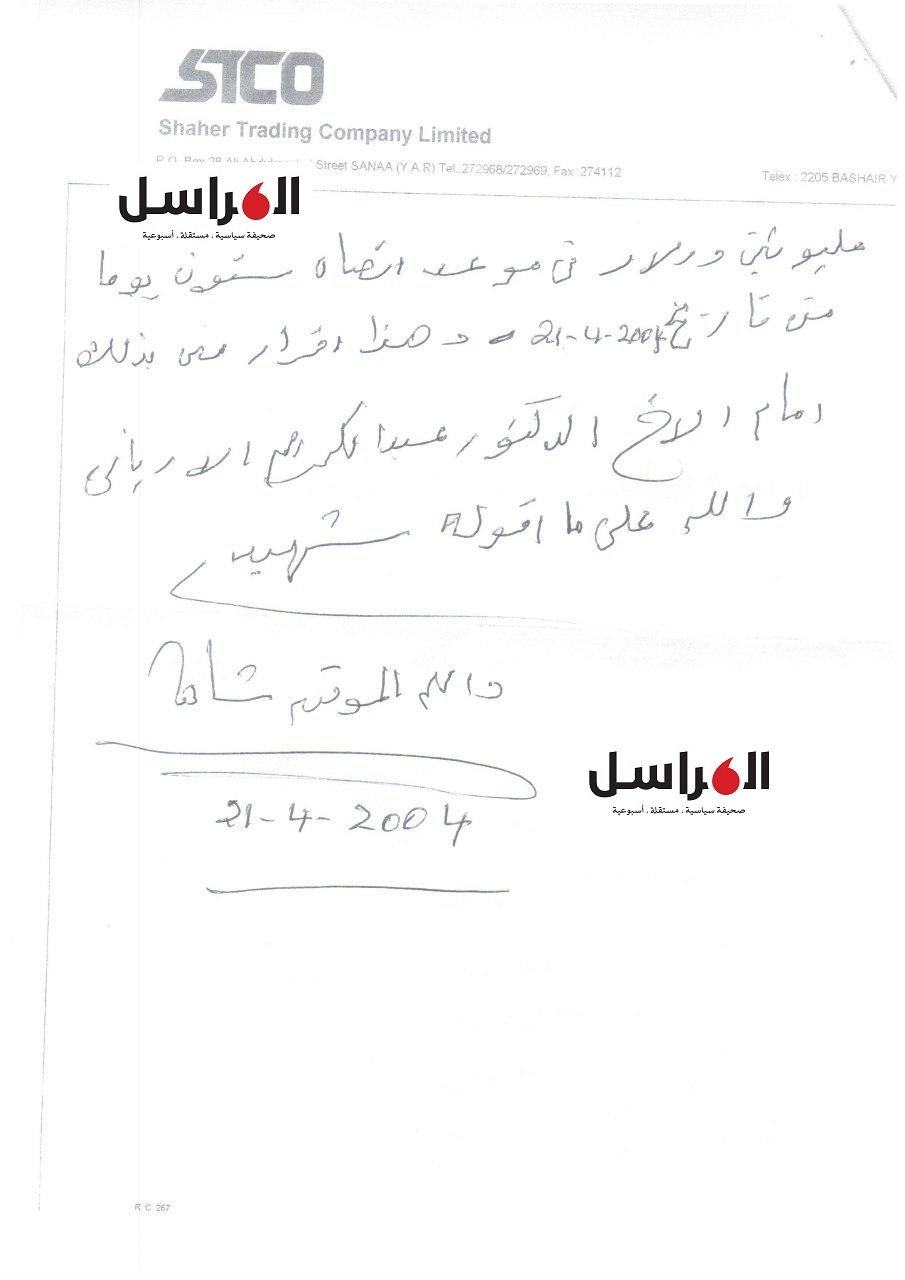 STCO
Shaher Trading Company Limited
P.O. Box 28 Street SANAA (Y.A.R) Tel.:272968/272969, Fax :274112
Telex : 2205 BASHAIR Y
المراسل
صحيفة سياسية . مستقلة . أسبوعية
مليونين دولار في موعد اقصاه ستون يوما
من تاريخ 21-4-2004 وهذا اقرار مني بذلك
امام الاخ الدكتور عبدالكريم الارياني
والله على ما اقوله شهيد
والله الموفق
21-4-2004
المراسل
صحيفة سياسية . مستقلة . أسبوعية
R.C. 267